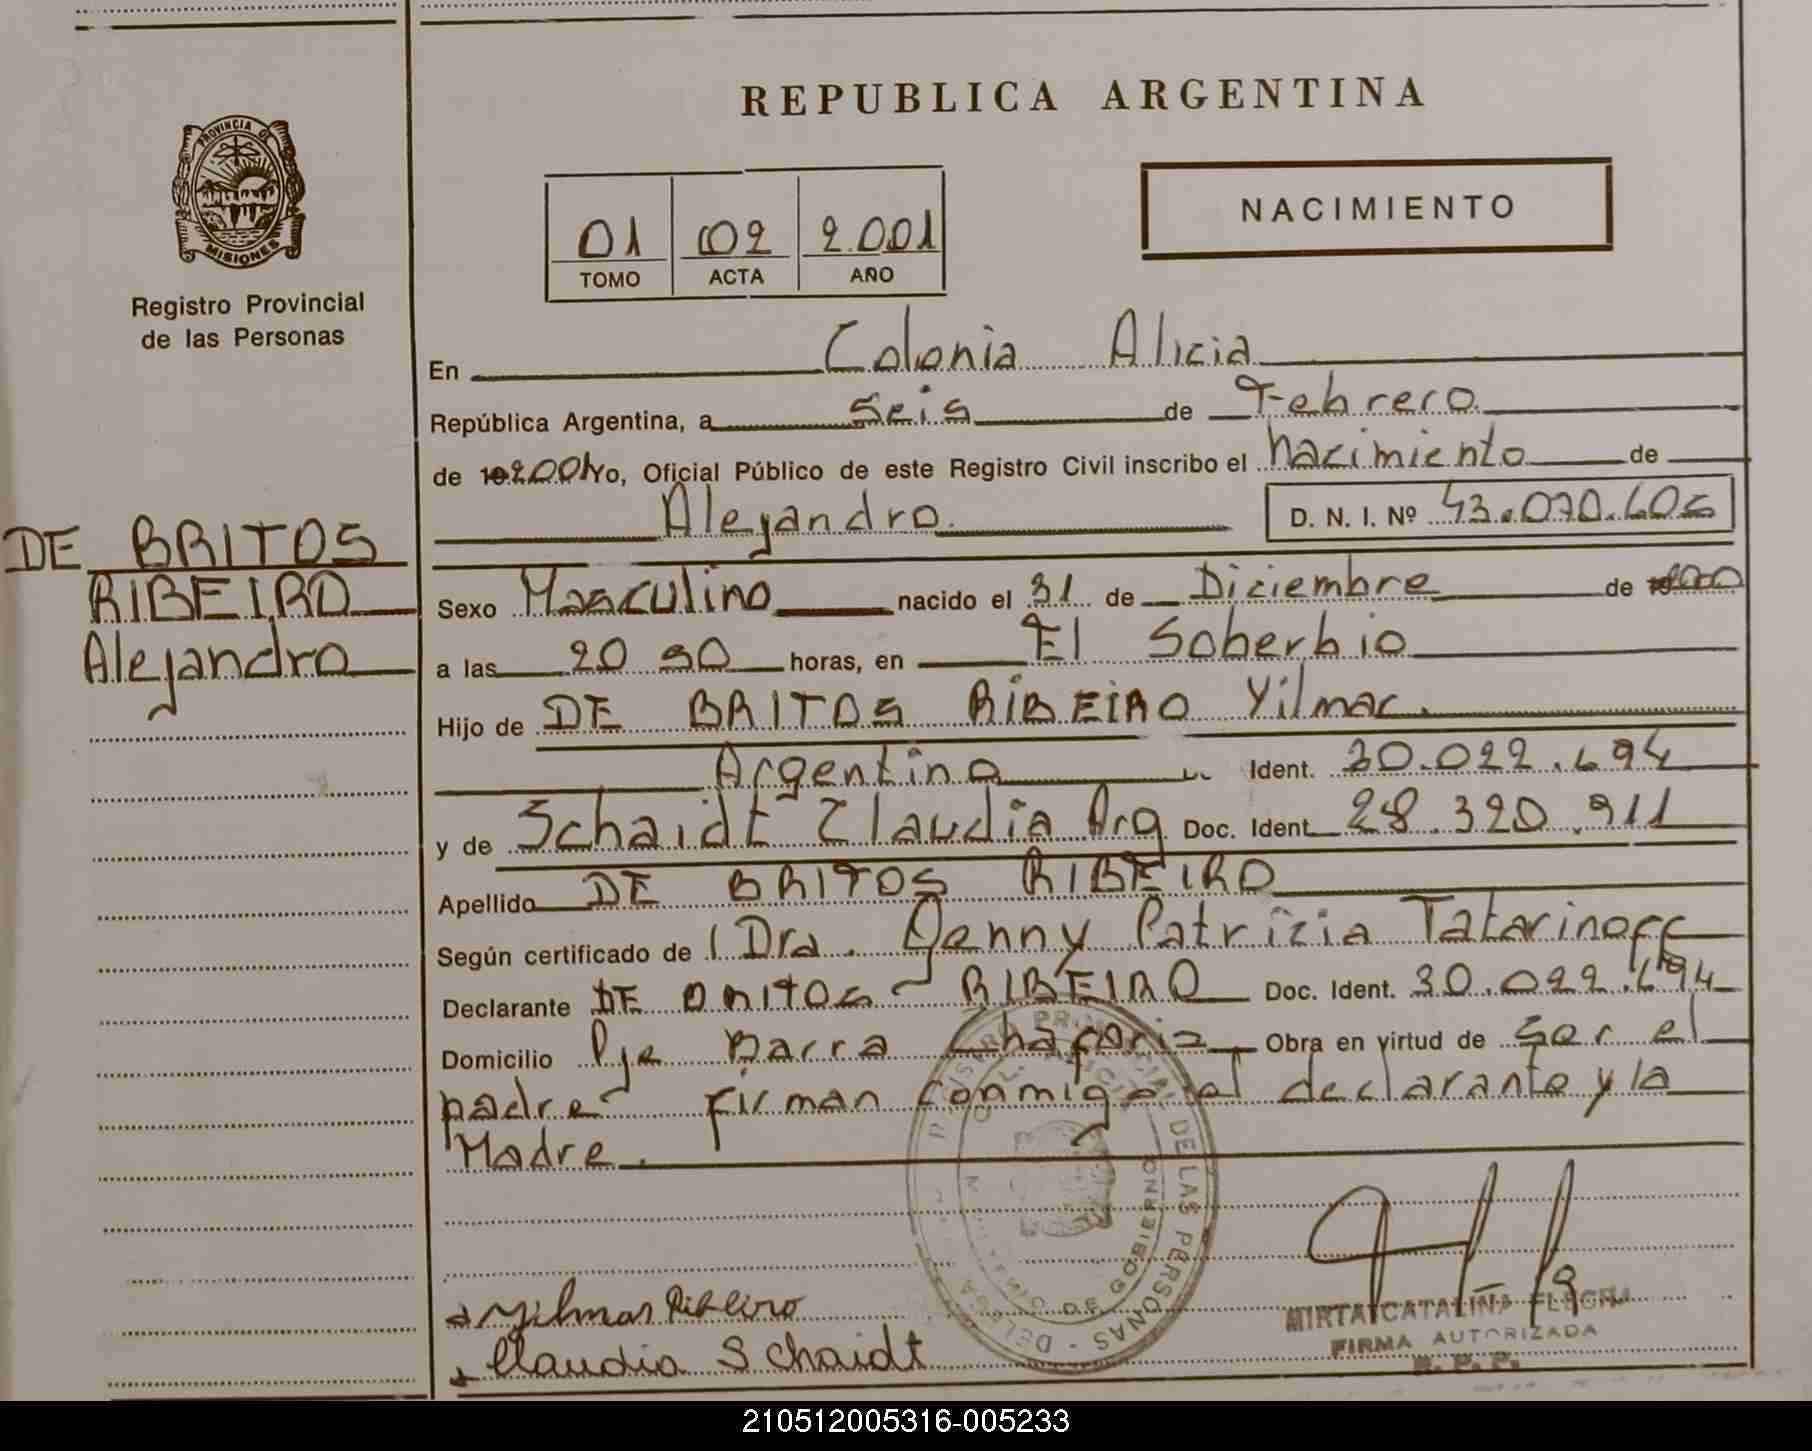 REPUBLICA ARGENTINA
PROVINCIA DE
MISIONES
Registro Provincial
de las Personas
NACIMIENTO
01 02 2.001
TOMO ACTA AÑO
En Colonia Alicia
República Argentina, a seis de Febrero
de 2001 Yo, Oficial Público de este Registro Civil inscribo el nacimiento de
Alejandro. D. N. I. Nº 43.070.606
DE BRITOS
RIBEIRO
Alejandro
Sexo Masculino nacido el 31 de Diciembre de 2000
a las 20 horas, en El Soberbio
Hijo de DE BRITOS RIBEIRO Yilmar.
Argentino Ident. 30.022.694
y de Schaidt Claudia Arg Doc. Ident. 28.320.911
Apellido DE BRITOS RIBEIRO
Según certificado de Dra. Genny Patricia Tatarinoff
Declarante DE BRITOS RIBEIRO Doc. Ident. 30.022.694
Domicilio Pje Barra Obra en virtud de ser el
padre firman conmigo el declarante y la
Madre.
Yilmar Ribeiro
Claudia Schaidt
DE LAS PERSONAS
MIRTA CATALINA
FIRMA AUTORIZADA
R. P. P.
210512005316-005233